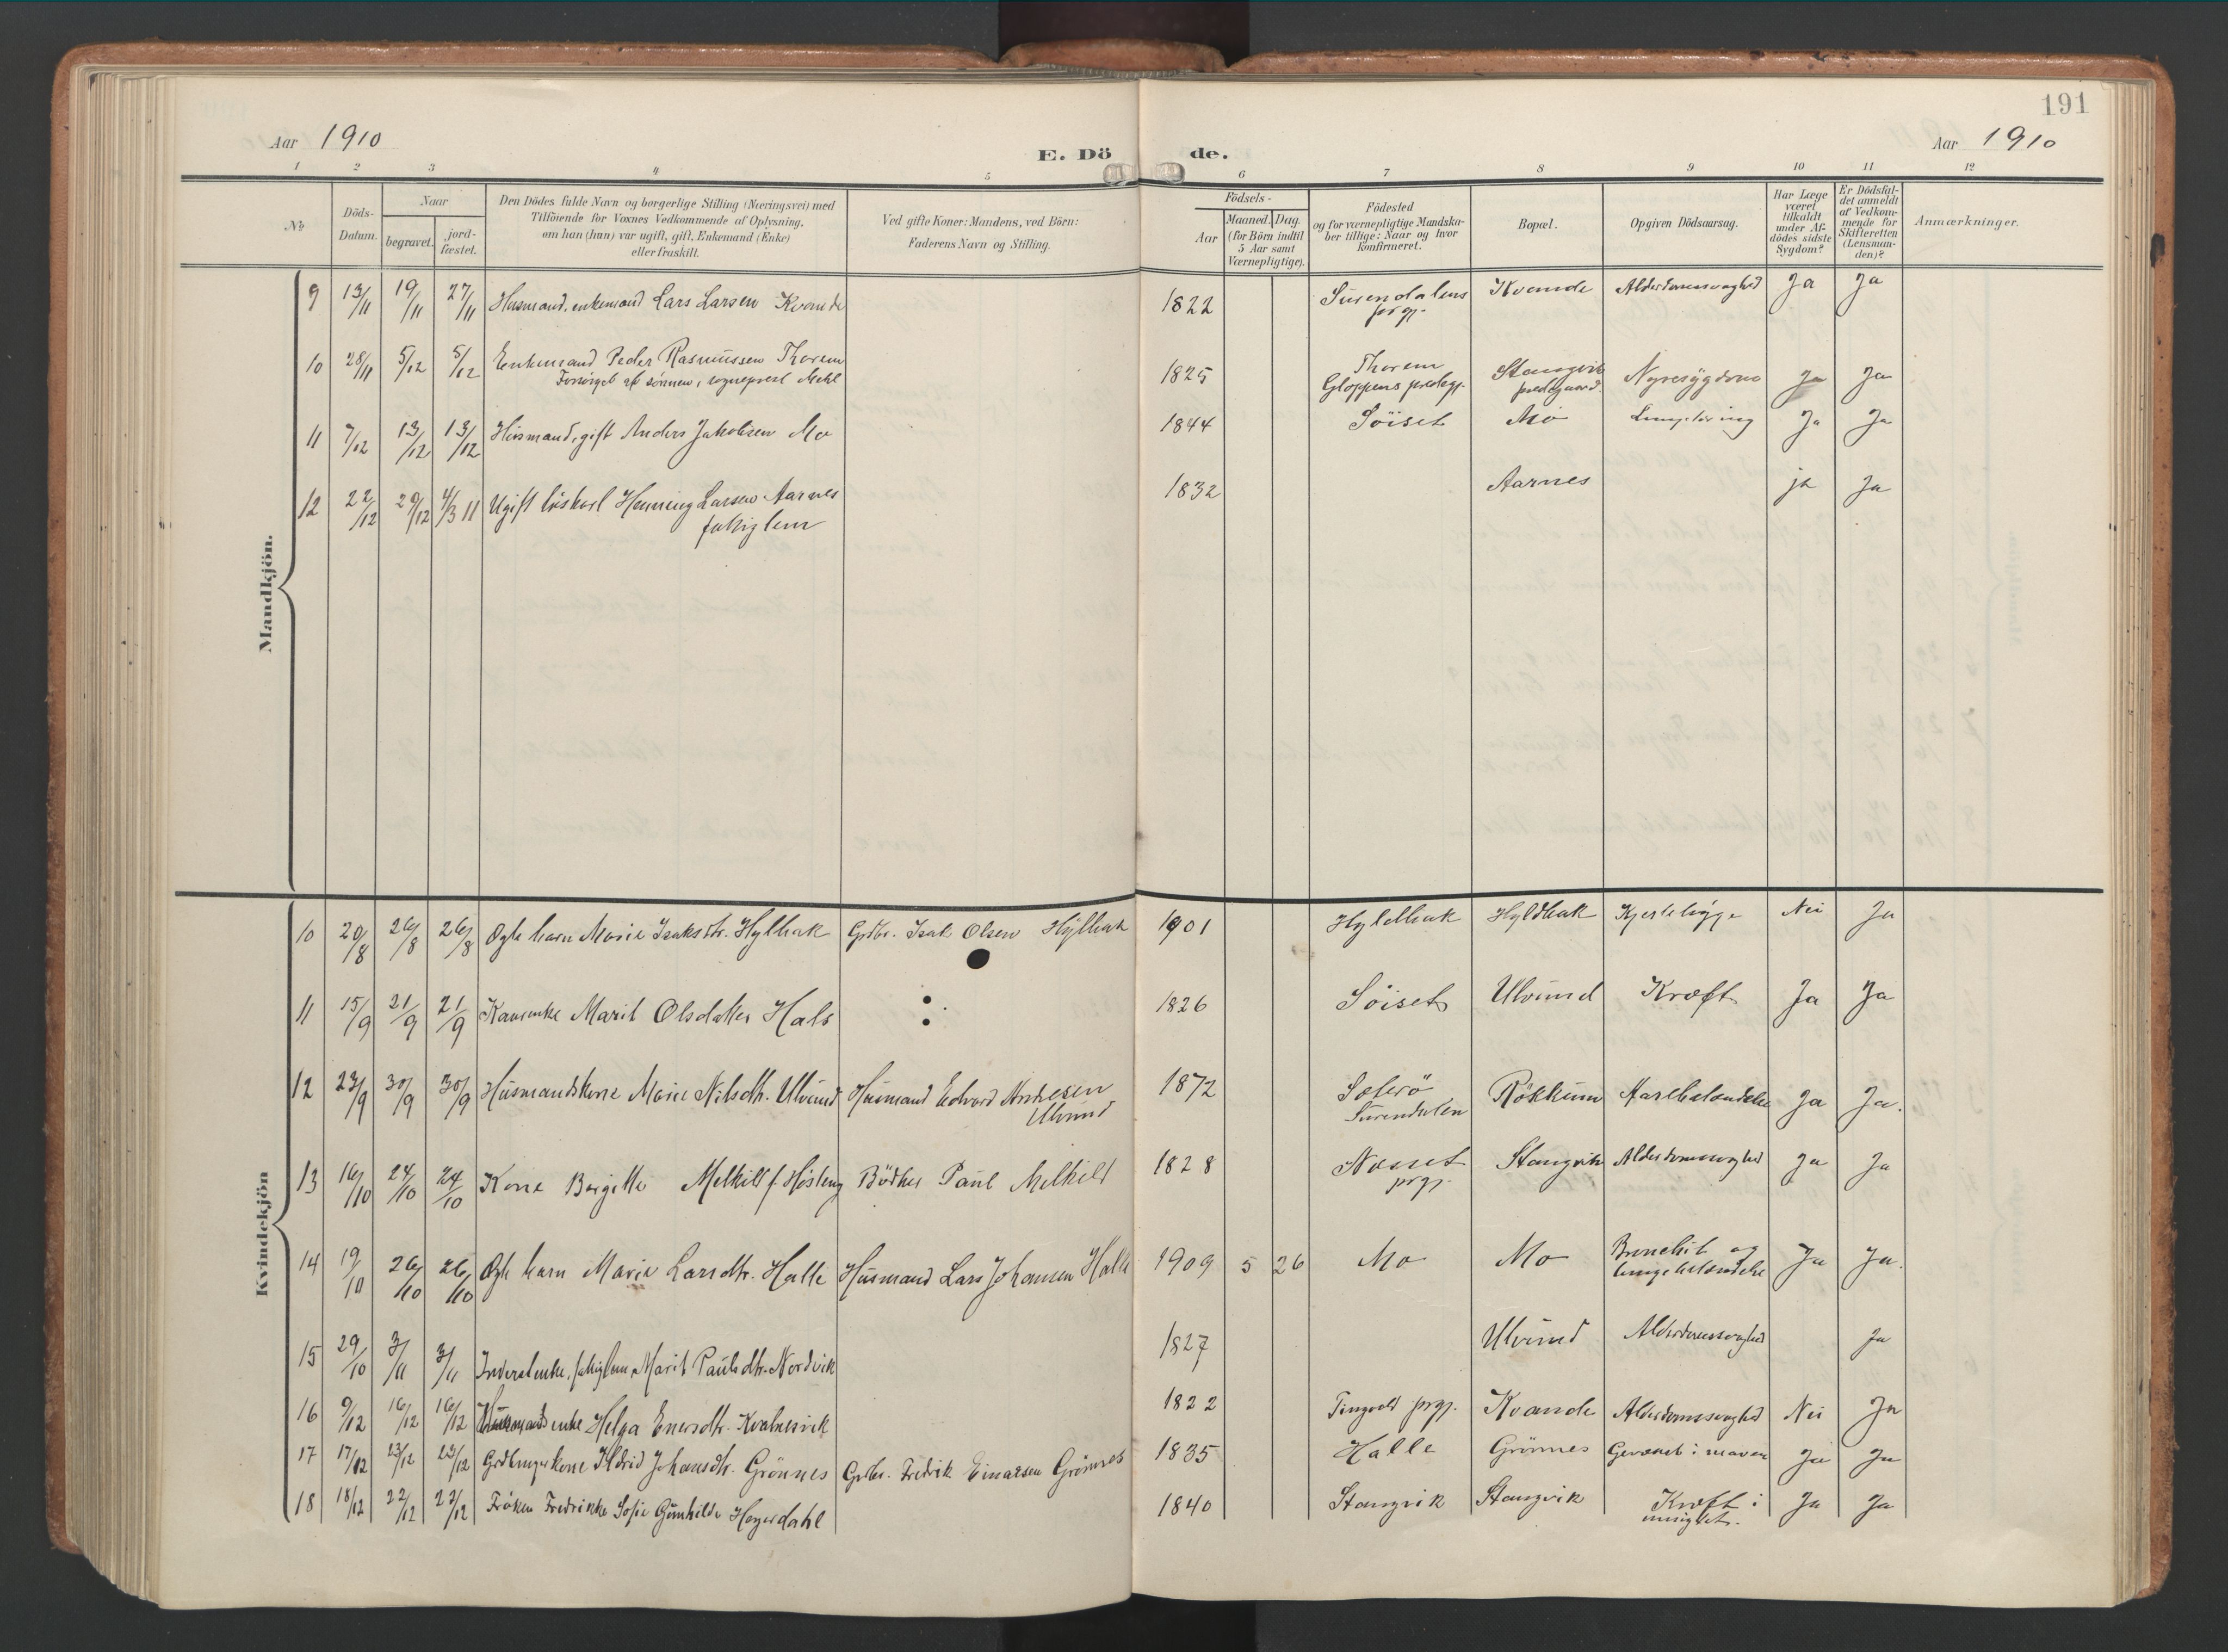 191
Aar 1910
E. Dö de.
Aar 1910
1 2 3 4 5 6 7 8 9 10 11 12
No
Döds-Datum.
Naar
begravet.
jord-fæstet.
Den Dödes fulde Navn og borgerlige Stilling (Næringsvei) med
Tilföiende for Voxnes Vedkommende af Oplysning,
om han (hun) var ugift, gift, Enkemand (Enke)
eller fraskilt.
Ved gifte Koner: Mandens, ved Börn:
Faderens Navn og Stilling.
Födsels-
Aar
Maaned. Dag.
(for Börn indtil
5 Aar samt
Værnepligtige).
Födested
og for værnepligtige Mandska-
ber tillige: Naar og hvor
konfirmeret.
Bopæl.
Opgiven Dödsaarsag.
Har Læge
været
tilkaldt
under Af-
dödes sidste
Sygdom?
Er Dödsfal-
det anmeldt
af Vedkom-
mende for
Skifteretten
(Lensman-
den)?
Anmærkninger.
Mandkjön.
9 13/11 19/11 27/11 Husmand, enkemand Lars Larsen Kvande 1822 Surendalens Kvande Alderdomssvaghed Ja Ja
prgj.
10 28/11 5/12 5/12 Enkemand Peder Rasmussen Thorem 1825 Thorem Stangvik Nyresygdom Ja Ja
Forsörget af sönnen, sogneprest Mehl Gloppens prestgj. prestegaard.
11 7/12 13/12 13/12 Husmand, gift Anders Jakobsen Mo 1844 Söiset Mo Ja Ja
12 22/12 29/12 4/3 11 Ugift löskarl Henning Larsen Aarnes 1832 Aarnes ja Ja
fattiglem
Kvindekjön
10 20/8 26/8 26/8 Ægte barn Marie Isaksdtr. Hylbak Grdbr. Isak Olsen Hylbak 1901 Hyldbak Hyldbak Nei Ja
11 15/9 21/9 21/9 Kaarenke Marit Olsdatter Hals : 1826 Söiset Ulvund Kræft Ja Ja
12 23/9 30/9 30/9 Husmandskone Marie Nilsdtr. Ulvund Husmand Edvard Andresen 1872 Sæterö Rökkum Ja Ja.
Ulvund Surendalen
13 16/10 24/10 24/10 Kone Birgitte Melkild f. Bödker Paul Melkild 1828 Næsset Stangvik Alderdomssvaghed Ja Ja
prgj.
14 19/10 26/10 26/10 Ægte barn Marie Larsdtr. Halle Husmand Lars Johansen Halle 1909 5 26 Mo Mo Bronchit og Ja Ja.
lungebetændelse
15 29/10 3/11 3/11 Inderstenke, fattiglem Marit Paulsdtr. Nordvik 1827 Ulvund Alderdomssvaghed Ja
16 9/12 16/12 16/12 Husmandsenke Helga Enersdtr. Kvalnesvik 1822 Tingvold prgj. Kvande Alderdomssvaghed Nei Ja
17 17/12 23/12 23/12 Grdbrugerkone Ildrid Johansdtr. Grönnes Grdbr. Fredrik Einarsen Grönnes 1835 Halle Grönnes Gevækst i maven Ja Ja
18 18/12 22/12 22/12 Fröken Fredrikke Sofie Gunhilde Heyerdahl 1840 Stangvik Stangvik Kræft i Ja Ja